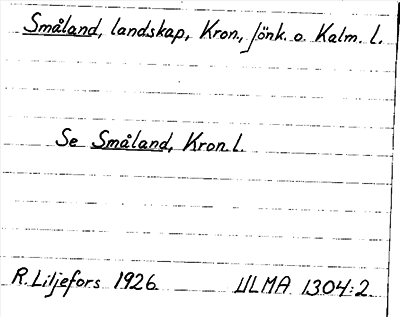 Småland, landskap, Kron., Jönk. o. Kalm. l.
Se Småland, Kron. l.
R. Liljefors 1926. ULMA 1304:2